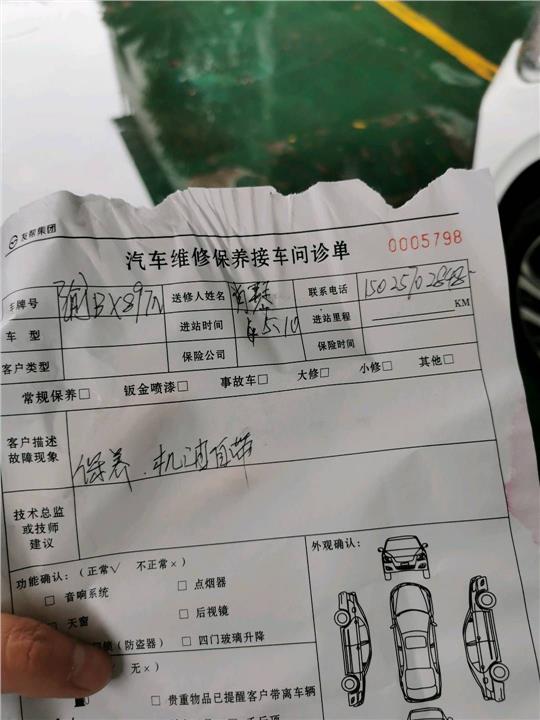 友帮集团
汽车维修保养接车问诊单 0005798
车牌号 BX897N 送修人姓名 联系电话 15025702898
车型 进站时间 5-10 进站里程 KM
客户类型 保险公司 保险时间
常规保养□ 钣金喷漆□ 事故车□ 大修□ 小修□ 其他□
客户描述
故障现象
保养.机油自带
技术总监
或技师
建议
功能确认：(正常√ 不正常×) 外观确认：
□ 音响系统 □ 点烟器
□ 天窗 □ 后视镜
锁(防盗器) □ 四门玻璃升降
无×)
□ 贵重物品已提醒客户带离车辆